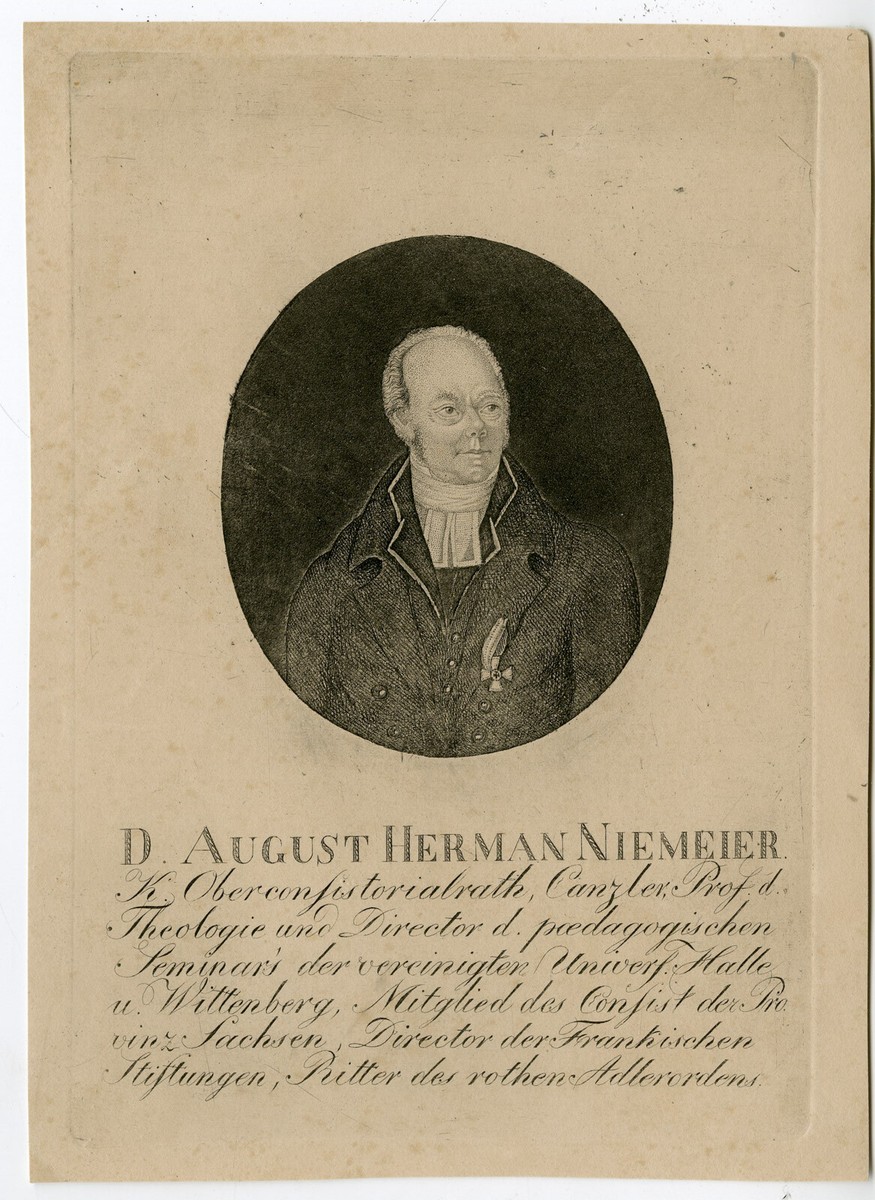 D. AUGUST HERMAN NIEMEIER.
K. Oberconſistorialrath, Canzler, Prof. d.
Theologie und Director d. pædagogischen
Seminar's der vereinigten Univerſ. Halle
u. Wittenberg, Mitglied des Conſist der Pro
vinz Sachsen, Director der Frankischen
Stiftungen, Ritter des rothen Adlerordens.